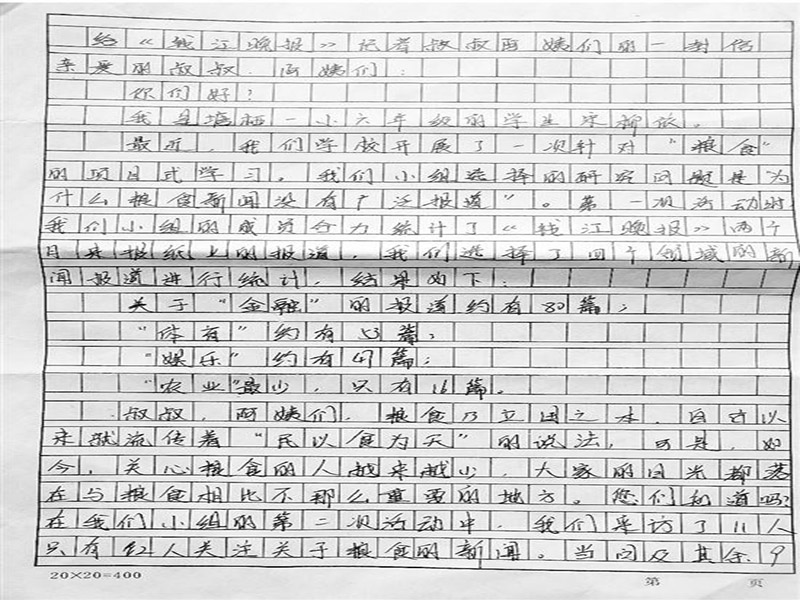 给《钱江晚报》记者叔叔阿姨们的一封信
亲爱的叔叔、阿姨们:
你们好!
我是塘栖一小六年级的学生宋柳依。
最近,我们学校开展了一次针对“粮食”
的项目式学习。我们小组选择的研究问题是为
什么粮食新闻没有广泛报道”。第一次活动时
我们小组的成员合力统计了《钱江晚报》两个
月来报纸上的报道,我们选择了四个领域的新
闻报道进行统计,结果如下:
关于“金融”的报道约有80篇;
“体育”约有53篇;
“娱乐”约有41篇;
“农业”最少,只有16篇。
叔叔、阿姨们,粮食乃立国之本,自古以
来就流传着“民以食为天”的说法,可是,如
今,关心粮食的人越来越少,大家的目光都落
在与粮食相比不那么重要的地方。您们知道吗?
在我们小组的第二次活动中,我们采访了11人
只有2人关注关于粮食的新闻。当问及其余9
20×20=400
第 页